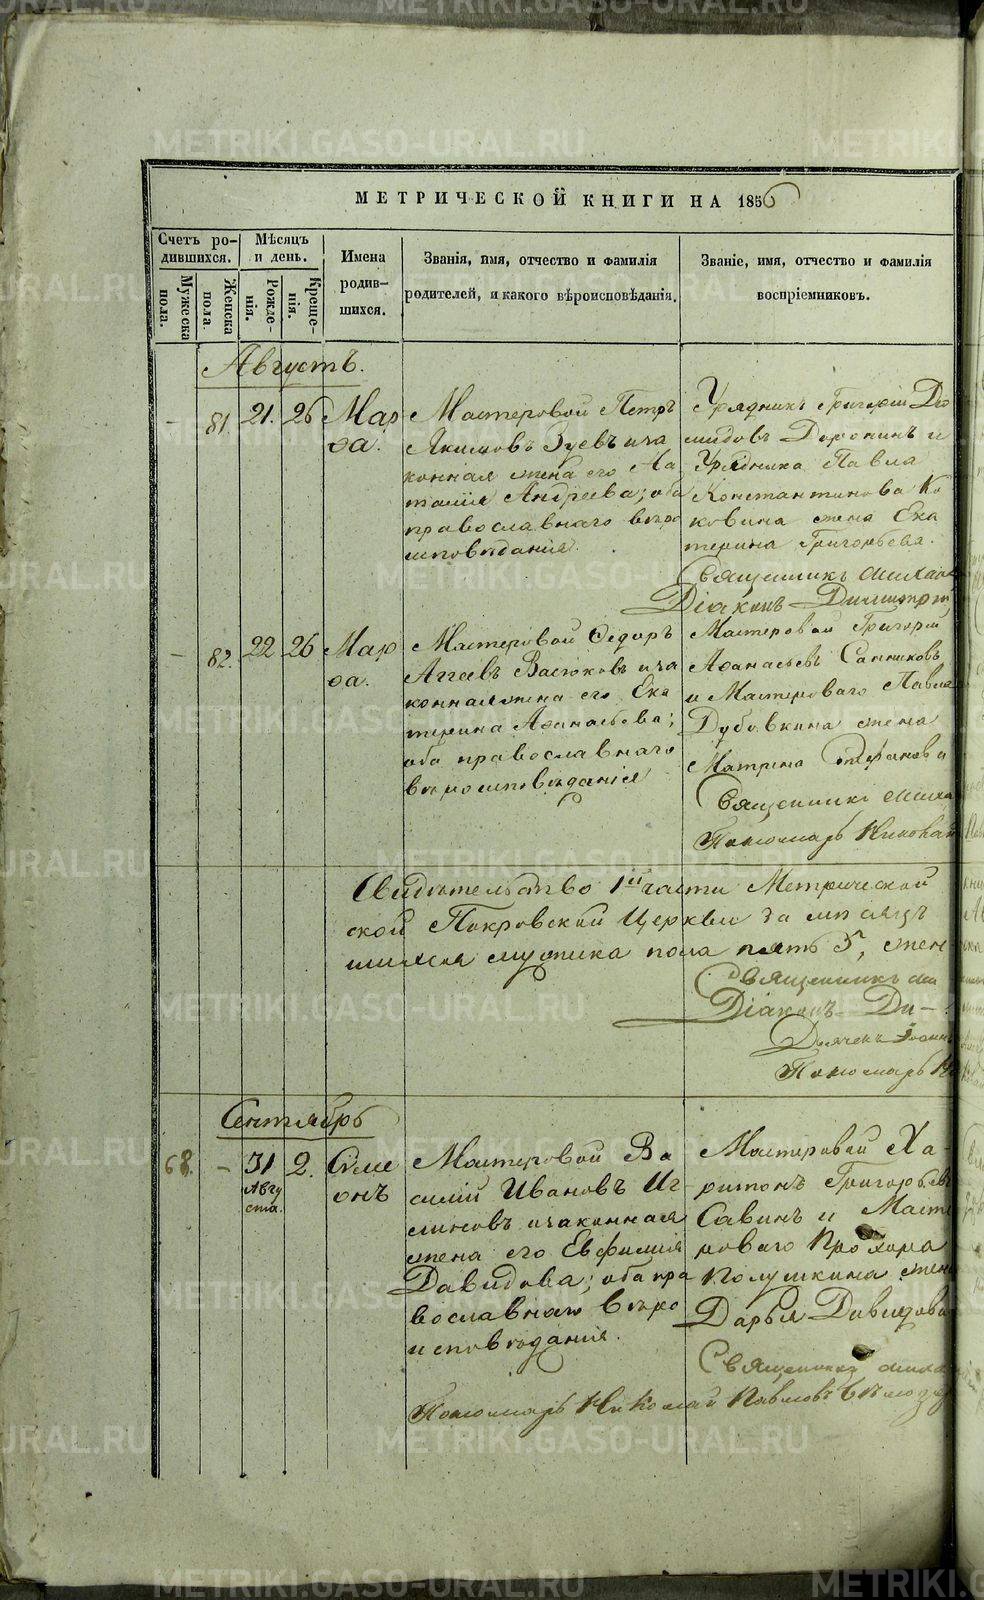 МЕТРИЧЕСКОЙ КНИГИ НА 1856
Счетъ ро-
дившихся.
Мужеска
пола.
Женска
пола
Мѣсяцъ
и день.
Рожде-
нія.
Креще-
нія.
Имена
родив-
шихся.
Званія, имя, отчество и фамилія
родителей, и какого вѣроисповѣданія.
Званіе, имя, отчество и фамилія
воспріемниковъ.
Августъ.
– 81. 21. 26 Мар
ѳа.
Мастеровой Петръ
Якимовъ Зуевъ и за
конная жена его На
талія Андреева; оба
православнаго вѣро
исповѣданія.
Урядникъ Григорій Де
мидовъ Доронинъ и
Урядника Павла
Константинова Ко
ковина жена Ека
терина Григорьева.
Священникъ Михаил
Діаконъ Димитрі
– 82. 22 26 Мар
ѳа.
Мастеровой Ѳедоръ
Аггеевъ Васюковъ и за
конная жена его Ека
терина Аѳанасьева;
оба православнаго
вѣроисповѣданія
Мастеровой Григорій
Аѳанасьевъ Санниковъ
и Мастероваго Павла
Дубовкина жена
Матрина Стефанова
Священникъ Миха
Пономарь Николай
Свидѣтельство 1ой части Метрической
ской Покровской Церкви за мѣсяцъ
шихся мужеска пола пять 5, жен-
Священникъ Ми
Діаконъ Ди-
Дьячекъ Іоанн
Пономарь Ни
Сентябрь
68. – 31 2. Симе
Авгу
ста.
онъ
Мастеровой Ва
силій Ивановъ Иг
линовъ и законная
жена его Евфимія
Давидова; оба пра
вославнаго вѣро
исповѣданія.
Мастеровой Ха-
ритонъ Григорьевъ
Савинъ и Масте
роваго Прохора
Полушкина жена
Дарья Давидова
Священникъ Миха
Пономарь Николай Павловъ
METRIKI.GASO-URAL.RU